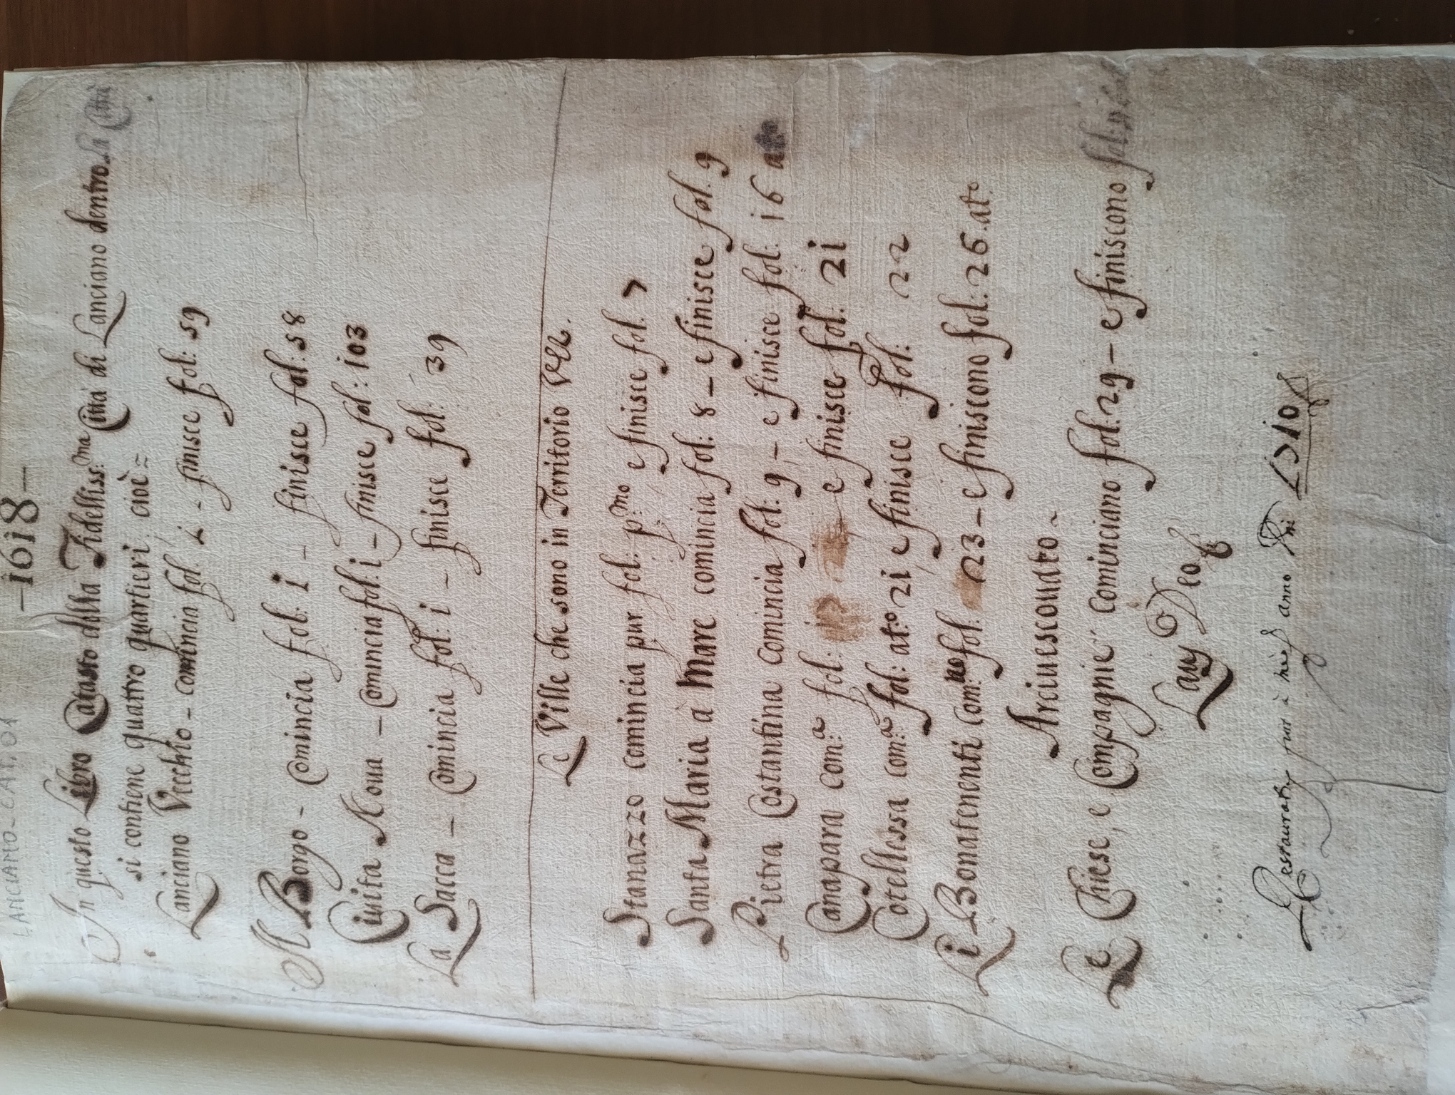 LANCIANO-CAT. 01
-1618-
In questo Libro Catasto della Fideliss:ma Città di Lanciano dentro la Città
si contiene quattro quartieri cioè=
Lanciano Vecchio - comincia fol. i - finisce fol: 59
Il Borgo - Comincia fol: i - finisce fol. 58
Ciuita Noua - Comincia fol: i - finisce fol: 103
La Sacca - Comincia fol: i - finisce fol: 39
Le Ville che sono in Territorio
Stanazzo comincia pur fol: p:mo e finisce fol. 7
Santa Maria à Mare comincia fol: 8 - e finisce fol. 9
Pietra Costantina Comincia fol: 9 - e finisce fol: i6 at:o
Canapara com:a fol: e finisce fol: 2i
Cotellessa com:a fol: at:o 2i e finisce fol: 22
Li Bonatenenti Com:no fol. 23 - e finiscono fol: 26. at:o
Arciuescouato.
Le Chiese, e Compagnie Cominciano fol: 29 - e finiscono fol:
Laus Deo
Restauratus fuit à me anno Dni 1710